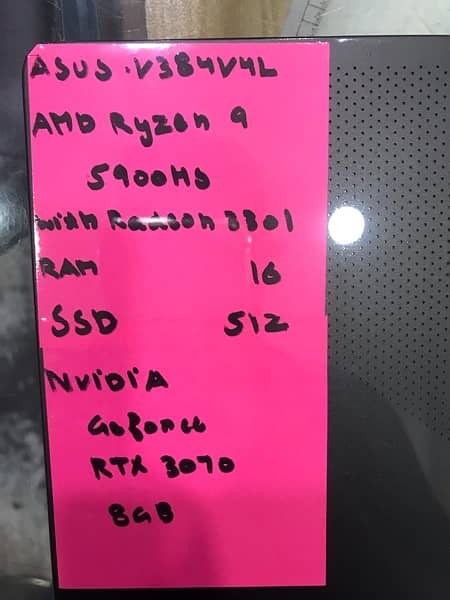 ASUS .V384V4L
AMD Ryzen 9
5900HS
with Radeon 3301
RAM 16
SSD 512
NVIDIA
Geforce
RTX 3070
8GB